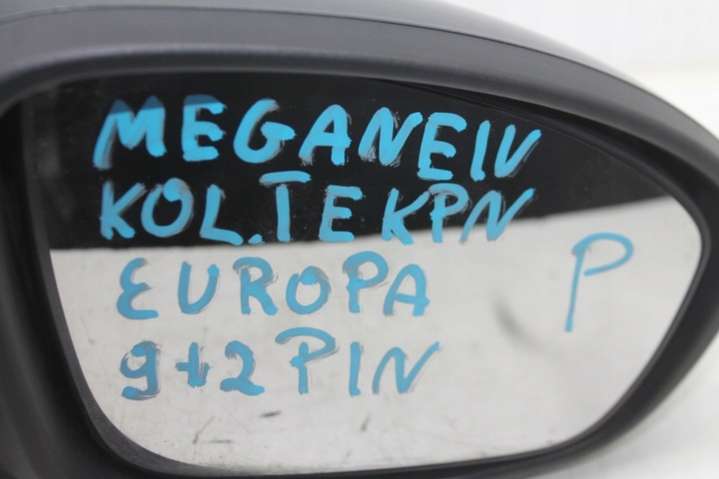 MEGANEIV
KOL.TEKPN
EUROPA
9+2PIN
P